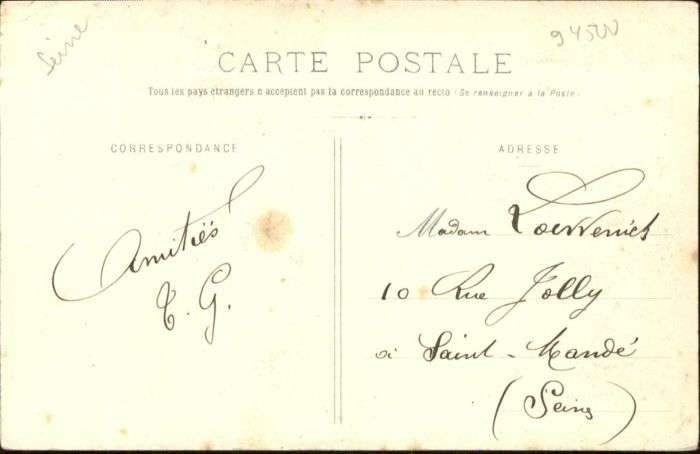 Seine
94500
CARTE POSTALE
Tous les pays étrangers n'acceptent pas la correspondance au recto (Se renseigner à la Poste)
CORRESPONDANCE
ADRESSE
Amitiés
T. G.
Madam
10 Rue Jolly
à Saint-Mandé
(Seine)